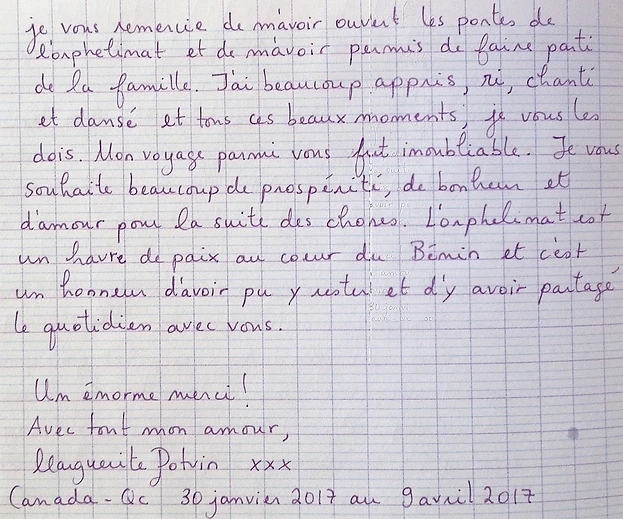 je vous remercie de m'avoir ouvert les portes de
l'orphelinat et de m'avoir permis de faire parti
de la famille. J'ai beaucoup appris, ri, chanté
et dansé et tous ces beaux moments, je vous les
dois. Mon voyage parmi vous fut inoubliable. Je vous
souhaite beaucoup de prospérité, de bonheur et
d'amour pour la suite des choses. L'orphelinat est
un havre de paix au coeur du Bénin et c'est
un honneur d'avoir pu y rester et d'y avoir partagé
le quotidien avec vous.
Un énorme merci!
Avec tout mon amour,
Marguerite Potvin xxx
Canada - Qc 30 janvier 2017 au 9 avril 2017